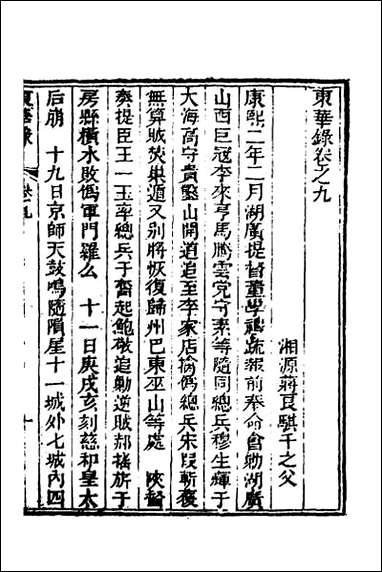 東華錄卷之九
湘源蔣良騏千之父
康熙二年二月湖廣提督董學禮疏報前奉命會勦湖廣
山西巨寇李來亨馬騰雲党守素等隨同總兵穆生輝于
大海高守貴鑿山開道追至李家店擒僞總兵宋段斬獲
無算賊焚巢遁又別將恢復歸州巴東巫山等處 陜督
奏提臣王一正率總兵于奮起鮑敬追勦逆賊郝搖旂于
房縣橫水敗僞軍門羅么 十一日庚戌亥刻慈和皇太
后崩 十九日京師天鼓鳴隨隕星十一城外七城內四
東華錄
卷九
一